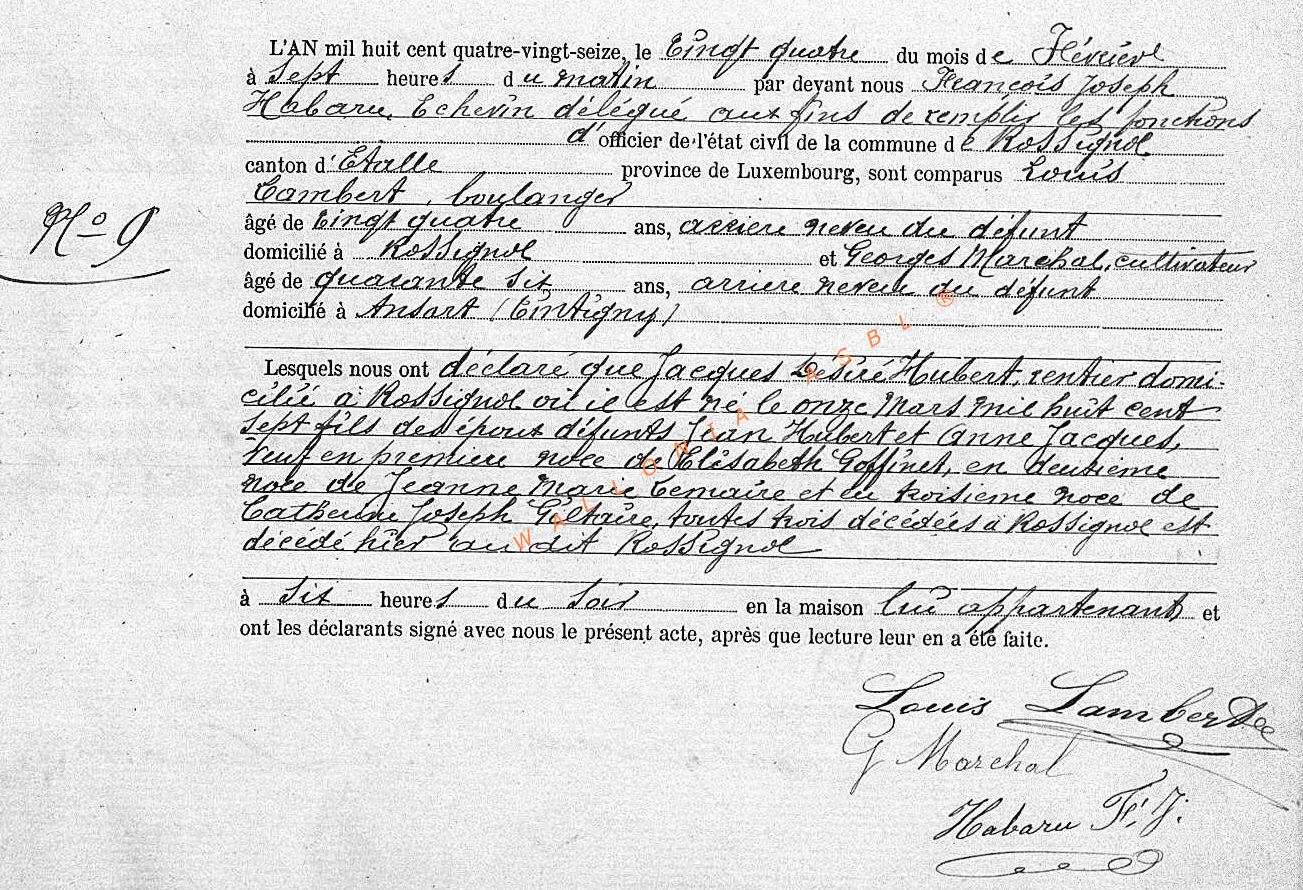 L'AN mil huit cent quatre-vingt-seize, le Vingt quatre du mois de Février
à Sept heures du matin par devant nous François Joseph
Habaru, Echevin délégué aux fins de remplir les fonctions
d'officier de l'état civil de la commune de Rossignol
canton d'Etalle province de Luxembourg, sont comparus Louis
Lambert, boulanger
âgé de Vingt quatre ans, arriere neveu du défunt
domicilié à Rossignol et Georges Marchal, cultivateur
âgé de quarante six ans, arriere neveu du défunt
domicilié à Ansart (Tintigny)
Lesquels nous ont déclaré que Jacques Désiré Hubert, rentier domi-
cilié à Rossignol où il est né le onze Mars mil huit cent
Sept fils des époux défunts Jean Hubert et Anne Jacques,
Veuf en premiere noce de Elisabeth Goffinet, en deuxieme
noce de Jeanne Marie Lemaire et en troisieme noce de
Catherine Joseph Giltaire, toutes trois décédées à Rossignol est
décédé hier au dit Rossignol
à Six heures du Soir en la maison lui appartenant, et
ont les déclarants signé avec nous le présent acte, après que lecture leur en a été faite.
No 9
Louis Lambert
G Marchal
Habaru F. J.
WALLONIA ASBL ®